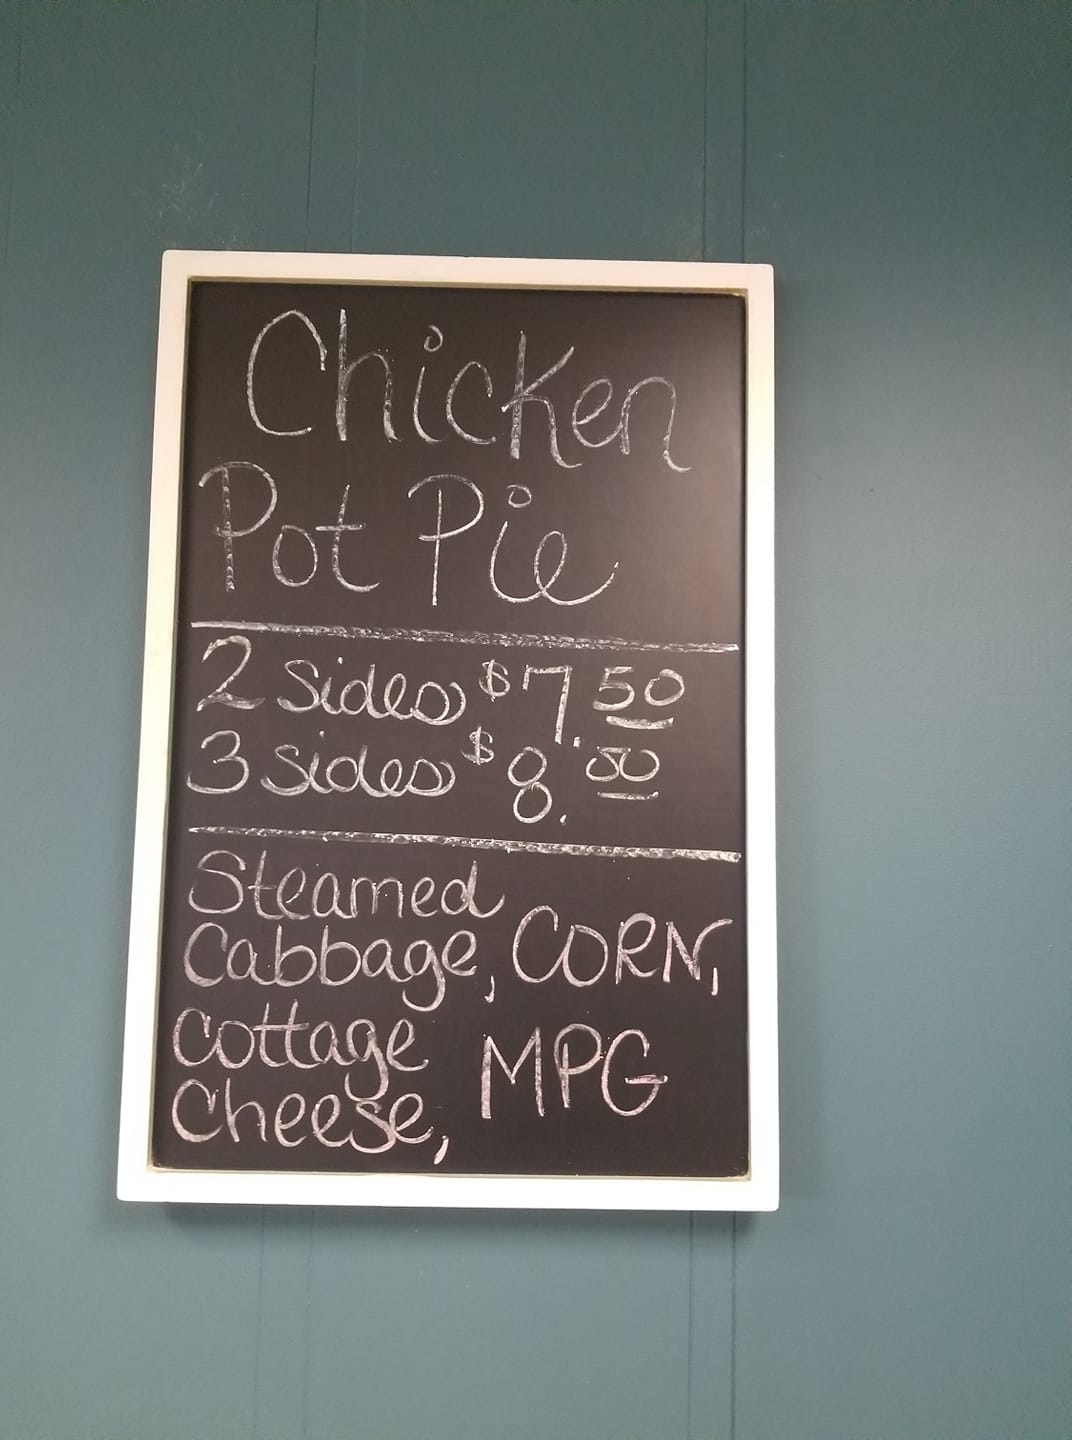 Chicken
Pot Pie
2 sides $7.50
3 sides $8.00
Steamed
Cabbage, CORN,
Cottage
Cheese, MPG